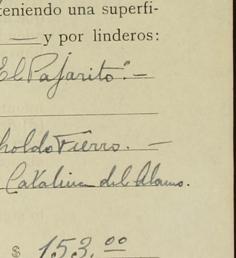 teniendo una superfi-
— y por linderos:
El Pajarito". —
holdo Fierro. —
Catalina del Alamo.
$ 153.00